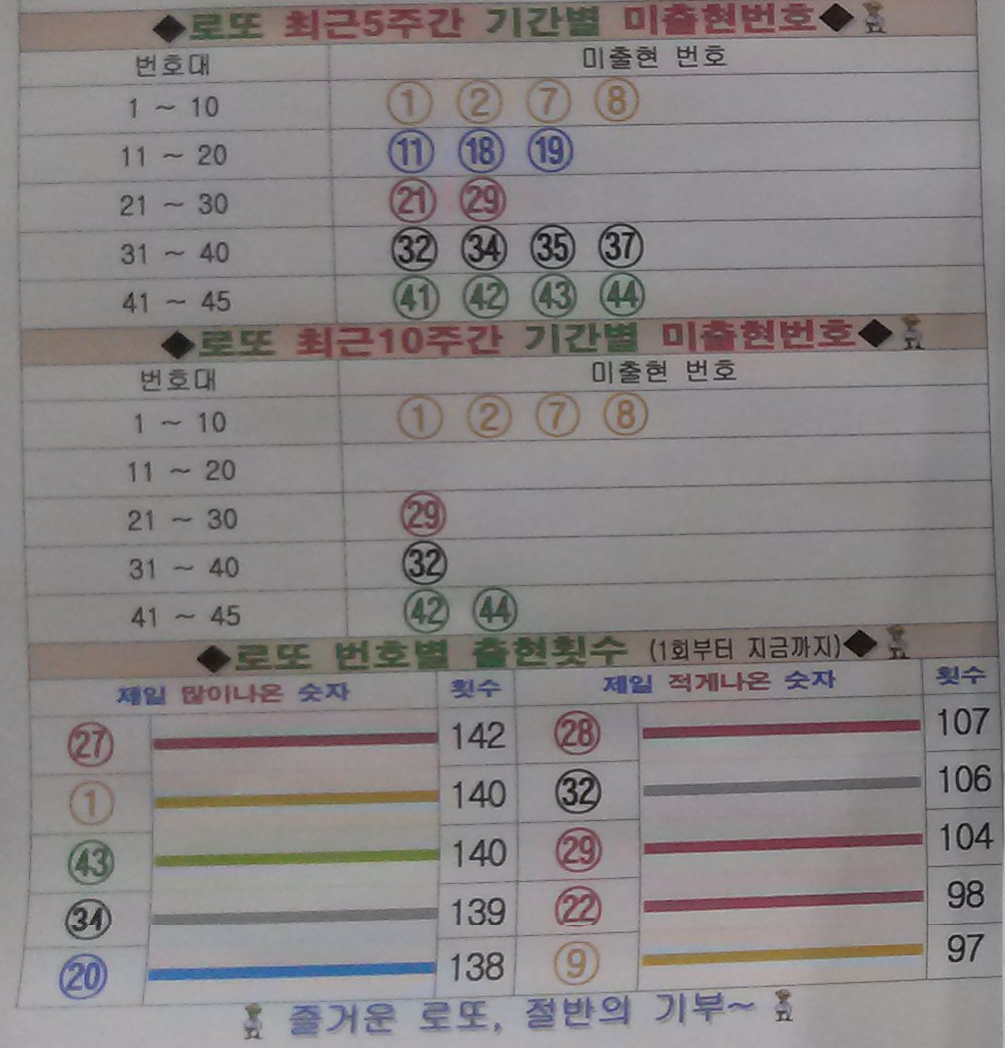 ◆로또 최근5주간 기간별 미출현번호◆
번호대 미출현 번호
1 ~ 10 1 2 7 8
11 ~ 20 11 18 19
21 ~ 30 21 29
31 ~ 40 32 34 35 37
41 ~ 45 41 42 43 44
◆로또 최근10주간 기간별 미출현번호◆
번호대 미출현 번호
1 ~ 10 1 2 7 8
11 ~ 20
21 ~ 30 29
31 ~ 40 32
41 ~ 45 42 44
◆로또 번호별 출현횟수 (1회부터 지금까지)◆
제일 많이나온 숫자 횟수 제일 적게나온 숫자 횟수
27 142 28 107
1 140 32 106
43 140 29 104
34 139 22 98
20 138 9 97
즐거운 로또, 절반의 기부~